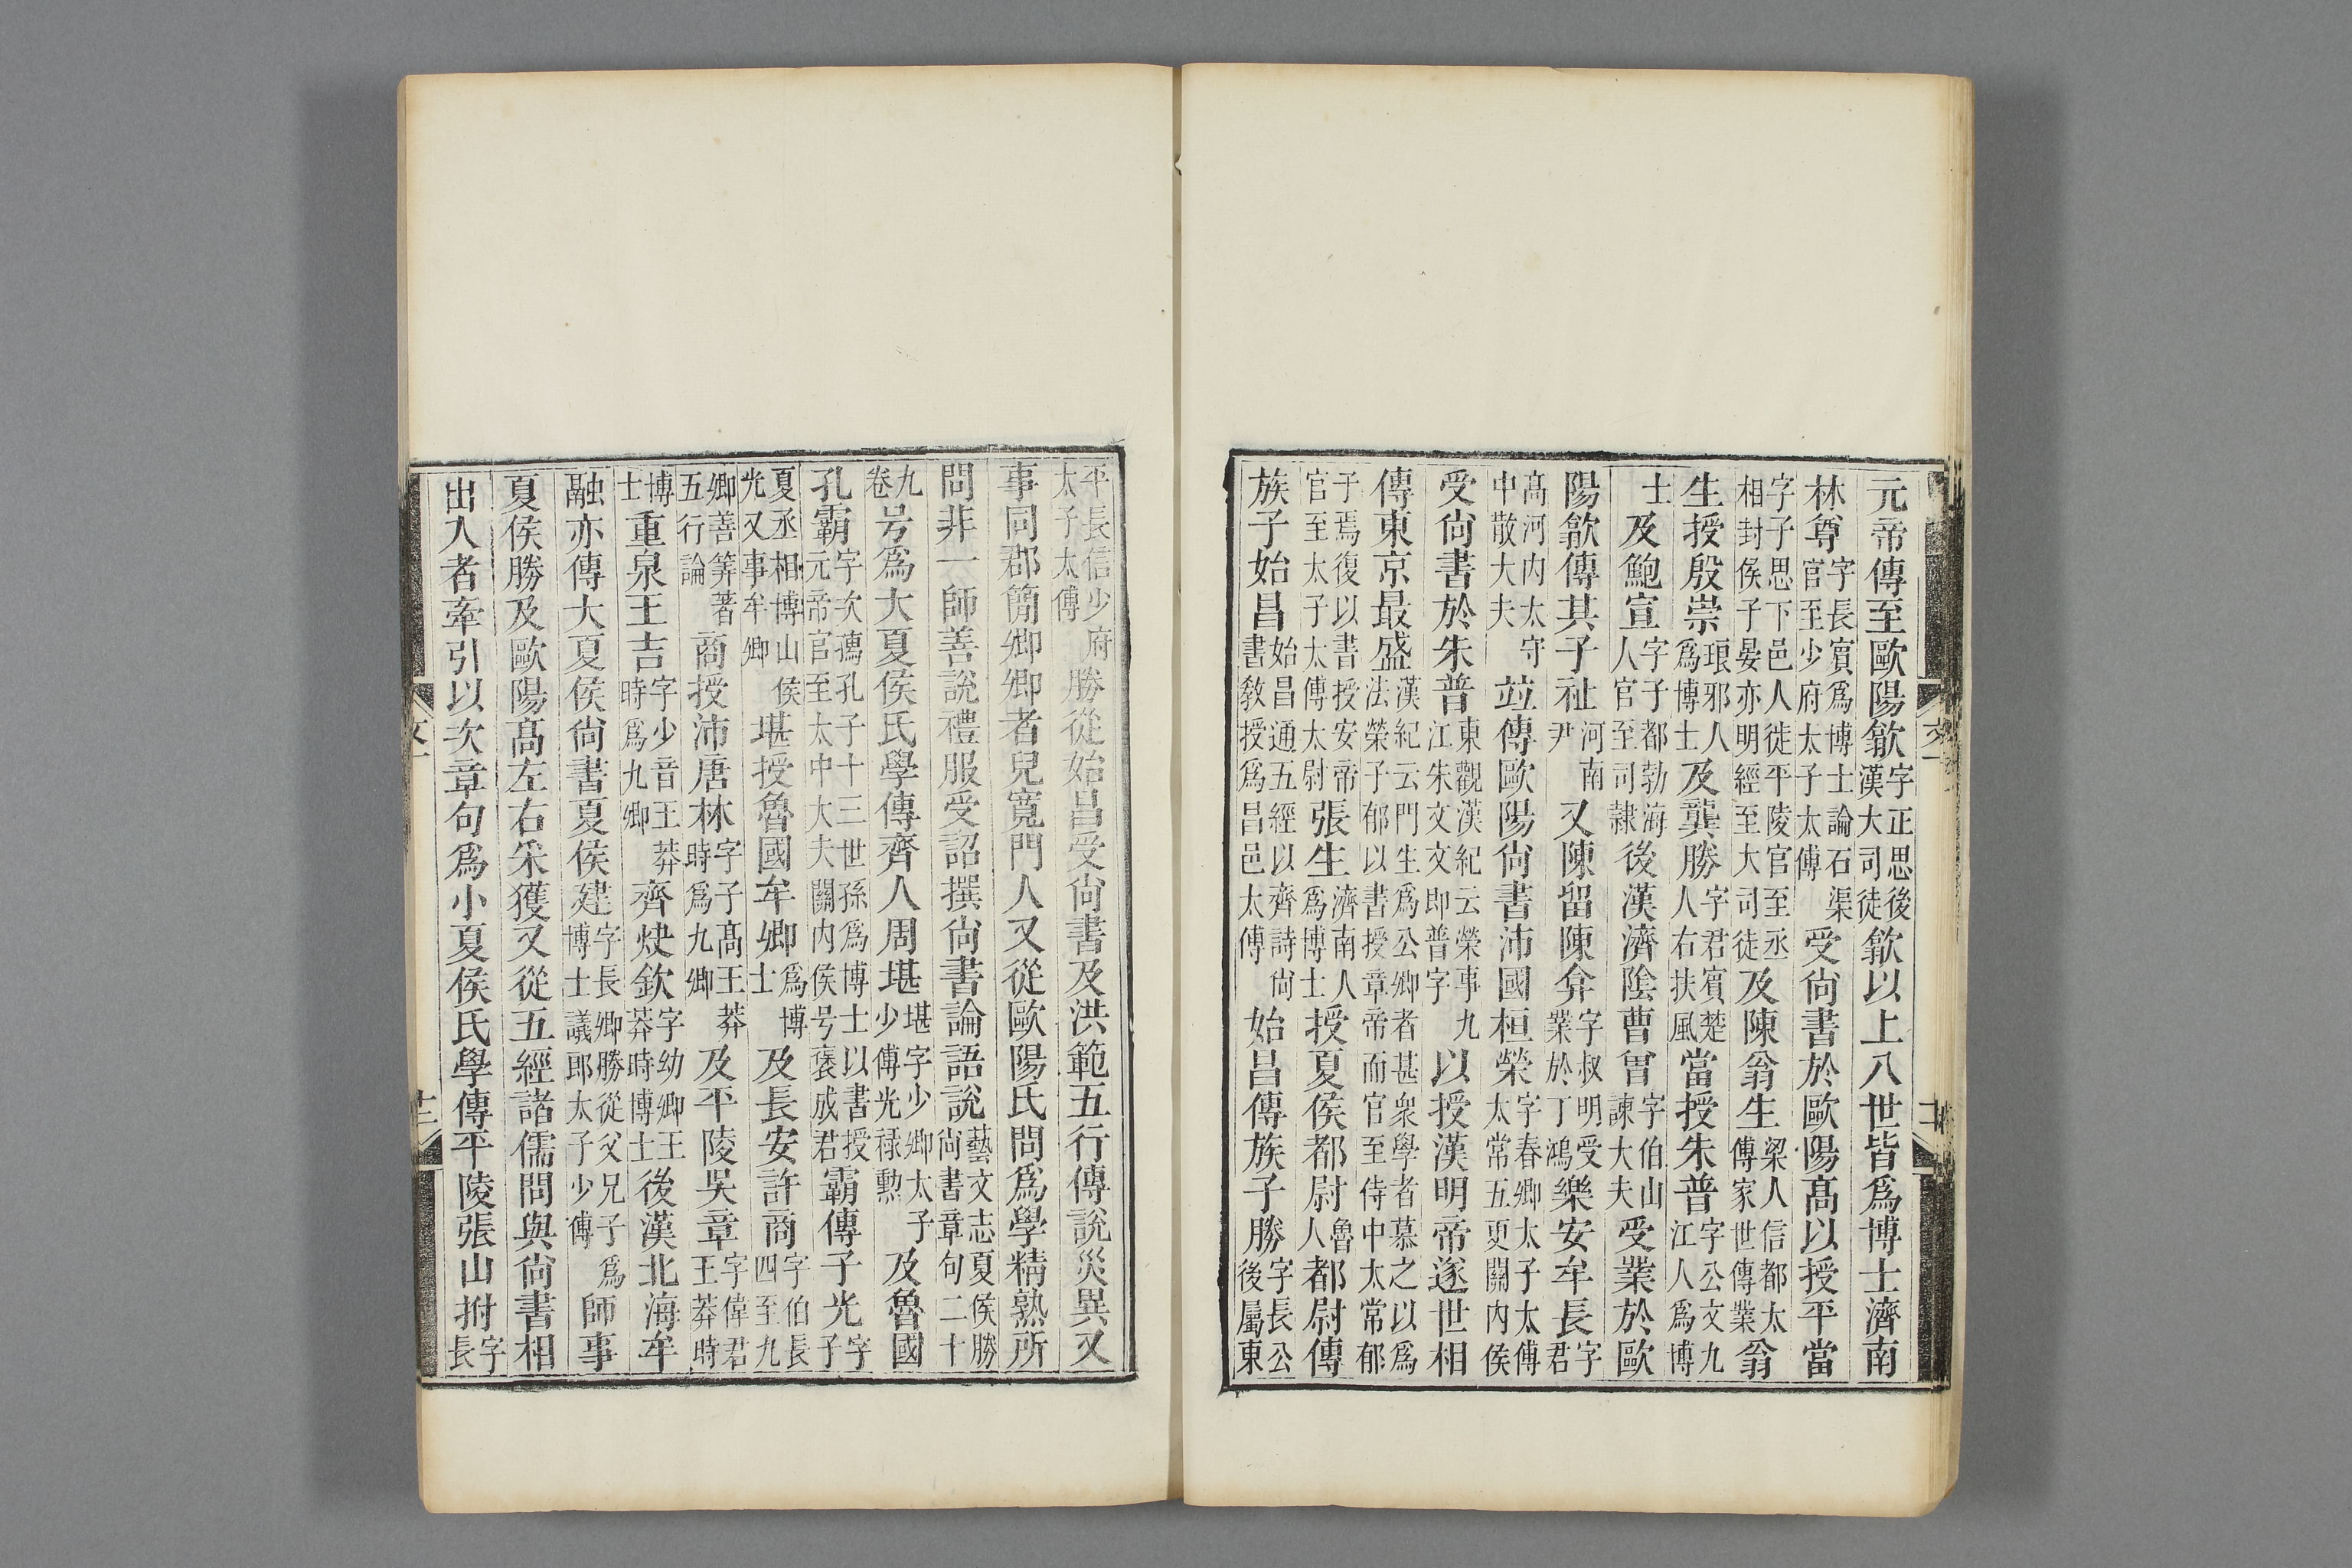 元帝傳至歐陽歙字正思後漢大司徒歙以上八世皆爲博士濟南
林尊字長賔爲博士論石渠官至少府太子太傅受尚書於歐陽髙以授平當
字子思下邑人徙平陵官至丞相封侯子晏亦明經至大司徒及陳翁生梁人信都太傅家世傳業翁
生授殷崇琅邪人爲博士及龔勝字君賔楚人右扶風當授朱普字公文九江人爲博
士及鮑宣字子都勃海人官至司隷後漢濟陰曹曾字伯山諫大夫受業於歐
陽歙傳其子祉河南尹又陳留陳弇字叔明受業於丁鴻樂安牟長字君
髙河内太守中散大夫竝傳歐陽尚書沛國桓榮字春卿太子太傅太常五更關内侯
受尚書於朱普東觀漢紀云榮事九江朱文文即普字以授漢明帝遂世相
傳東京最盛漢紀云門生爲公卿者甚衆學者慕之以爲法榮子郁以書授章帝而官至侍中太常郁
子焉復以書授安帝官至太子太傅太尉張生濟南人爲博士授夏侯都尉魯人都尉傳
族子始昌始昌通五經以齊詩尚書敎授爲昌邑太傅始昌傳族子勝字長公後屬東
平長信少府太子太傅勝從始昌受尚書及洪範五行傳說災異又
事同郡簡卿卿者兒寬門人又從歐陽氏問爲學精熟所
問非一師善說禮服受詔撰尚書論語說藝文志夏侯勝尚書章句二十
九卷号爲大夏侯氏學傳齊人周堪堪字少卿太子少傅光祿勲及魯國
孔霸字次孺孔子十三世孫爲博士以書授元帝官至太中大夫關内侯号襃成君霸傳子光字子
夏丞相博山侯光又事牟卿堪授魯國牟卿爲博士及長安許商字伯長四至九
卿善筭著五行論商授沛唐林字子髙王莽時爲九卿及平陵吳章字偉君王莽時
博士重泉王吉字少音王莽時爲九卿齊炔欽字幼卿王莽時博士後漢北海牟
融亦傳大夏侯尚書夏侯建字長卿勝從父兄子爲博士議郎太子少傅師事
夏侯勝及歐陽髙左右采獲又從五經諸儒問與尚書相
出入者牽引以次章句爲小夏侯氏學傳平陵張山拊字長